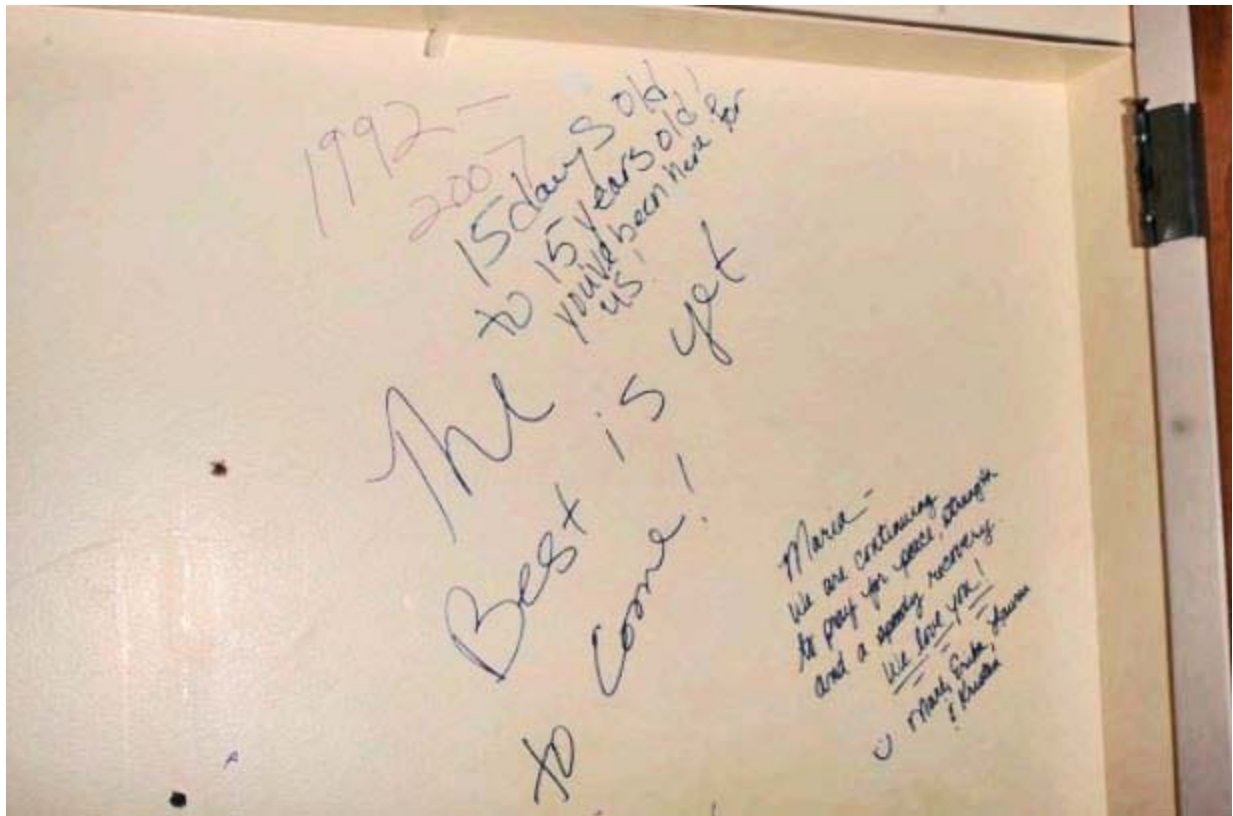 1992-
2007
15 days old
to 15 years old!
you've been here for
us!
The
Best is yet
to come!
Maria -
We are continuing
to pray for peace, strength
and a speedy recovery.
We love you!
Mark, Erika, Lauren
& Kristen